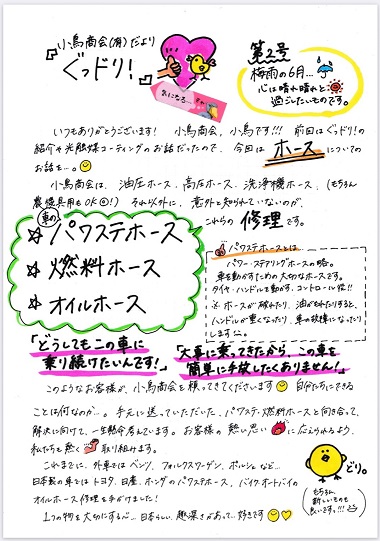 小鳥商会(有)だより
『ぐっドリ!』
気になる…
第2号
梅雨の6月…
心は晴れ晴れと
過ごしたいものです。
いつもありがとうございます! 小鳥商会、小鳥です!!! 前回はぐっドリ!の
紹介や光触媒コーティングのお話だったので、今回は ホース についての
お話を…。
小鳥商会は、油圧ホース、高圧ホース、洗浄機ホース、(もちろん
農機具用もOK!) それ以外に、意外と知られていないのが、
これらの 修理 です。
車の
☆ パワステホース
☆ 燃料ホース
☆ オイルホース
パワステホースとは
パワー・ステアリングホースの略。
車を動かすための大切なホースです。
タイヤ・ハンドルを動かす、コントロール役!!
※ホースが破れたり、油がもれたりすると、
ハンドルが重くなったり、車の故障になったり
します。
「どうしてもこの車に
乗り続けたいんです!」
「大事に乗ってきたから、この車を
簡単に手放したくありません!」
このようなお客様が、小鳥商会を頼ってきてくださいます 自分たちにできる
ことは何なのか…。手元に送っていただいた、パワステ・燃料ホースと向き合って、
解決に向けて、一生懸命考えています。お客様の熱い思いに応えられるよう、
私たちも熱く取り組みます。
これまでに、外車ではベンツ、フォルクスワーゲン、ポルシェなど…
日本製の車ではトヨタ、日産、ホンダのパワステホース、バイク、オートバイの
オイルホース修理を手がけました!
1つの物を大切にする心…日本らしい、趣深さがあって…好きです
どり。
(もちろん
新しいものも
良いです。!!!)